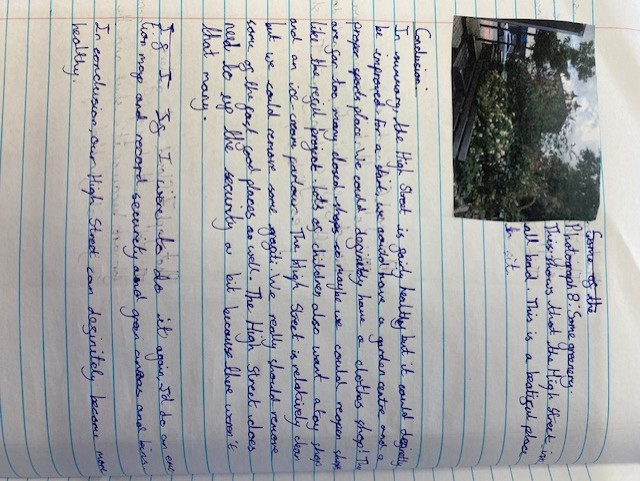 Some of the
Photograph 8: Some greenery.
This shows that the High Street isn
all bad. This is a beatiful place
it
Conclusion:
In summary, the High Street is fairly healthy but it could definitely
be improved. For a start, we could have a garden centre and a
proper sports place. We could definitely have a clothes shop! The
are far too many closed shops so maybe we could reopen shops
like the regid progect. Lots of children also want a toy shop
and an ice-cream parlour. The High Street is relatively clean
but we could remove some graffiti. We really should remove
some of the fast food places as well. The High Street does
need to up the security a bit because there weren't
that many.
If I If I were to do it again, I'd do an emo
tion map and record security and green areas and bins.
In conclusion, our High Street can definitely become more
healthy.